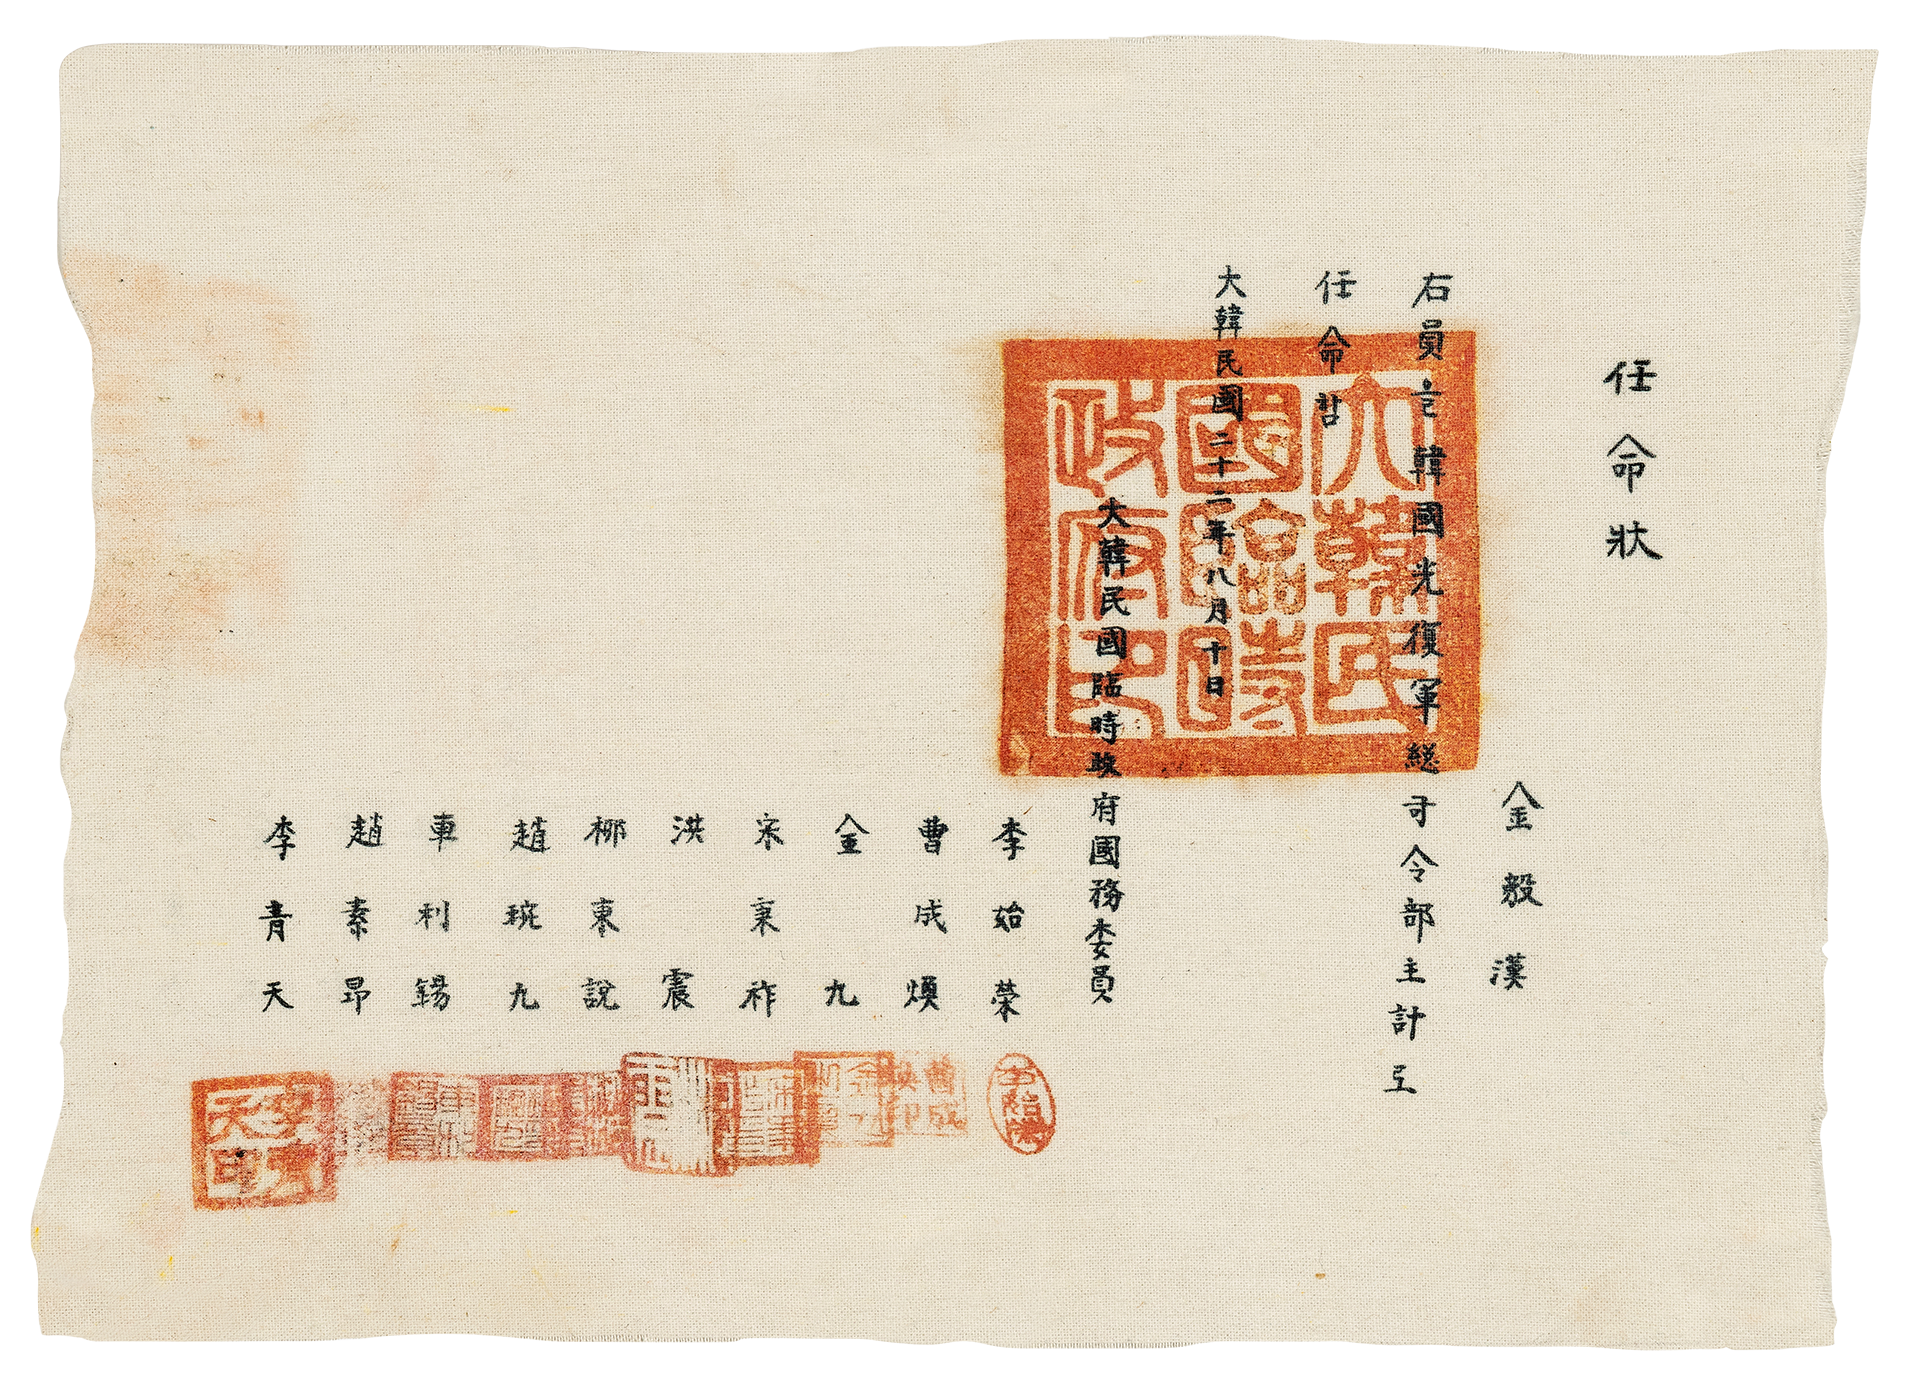 任命狀
金毅漢
右員는韓國光復軍總司令部主計로
任命함
大韓民國二十二年八月十日
大韓民國臨時政府國務委員
李始榮
曹成煥
金九
宋秉祚
洪震
柳東說
趙琬九
車利錫
趙素昂
李靑天
大韓民
國臨時
政府印